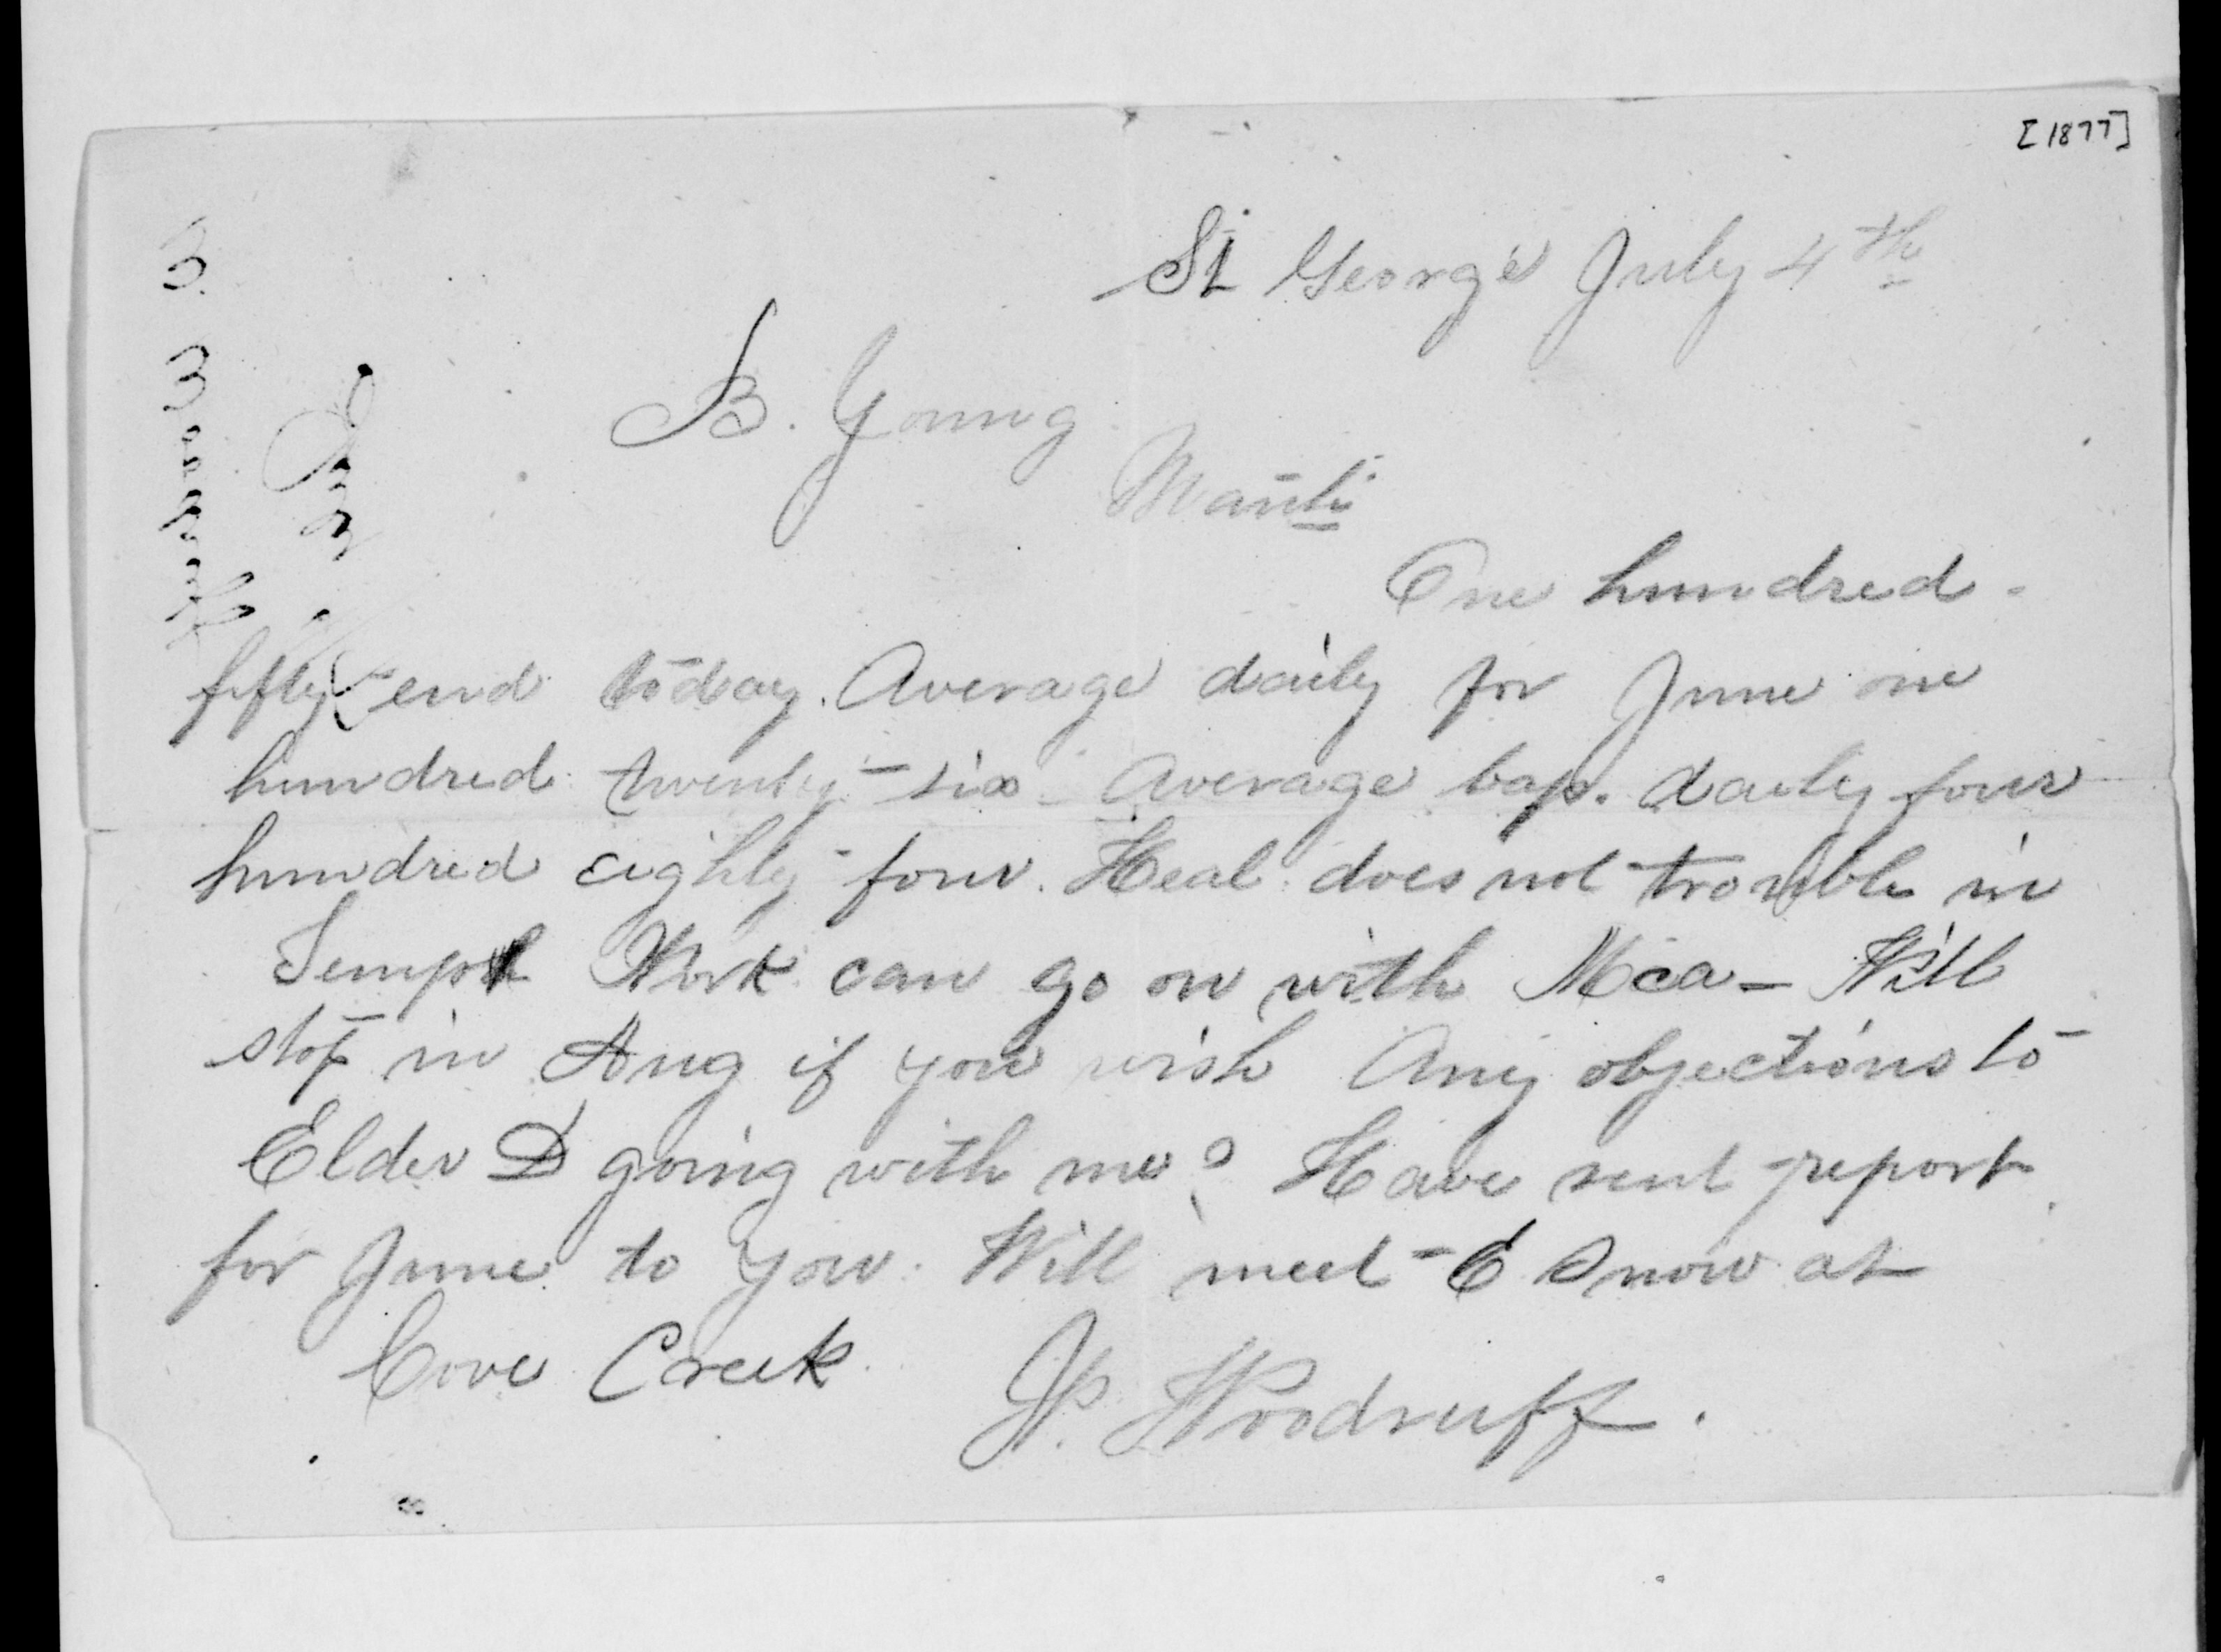 [1877]
St George July 4th
B. Young
Manti
One hundred
fifty end today. Average daily for June one
hundred twenty-six – Average bap. daily four
hundred eighty-four. Heat does not trouble in
Templ Work can go on with Mca – Will
stop in Aug if you wish Any objections to
Elder D going with me? Have sent report
for June to you. Will meet E Snow at
Cove Creek W. Woodruff.
W. Woodruff